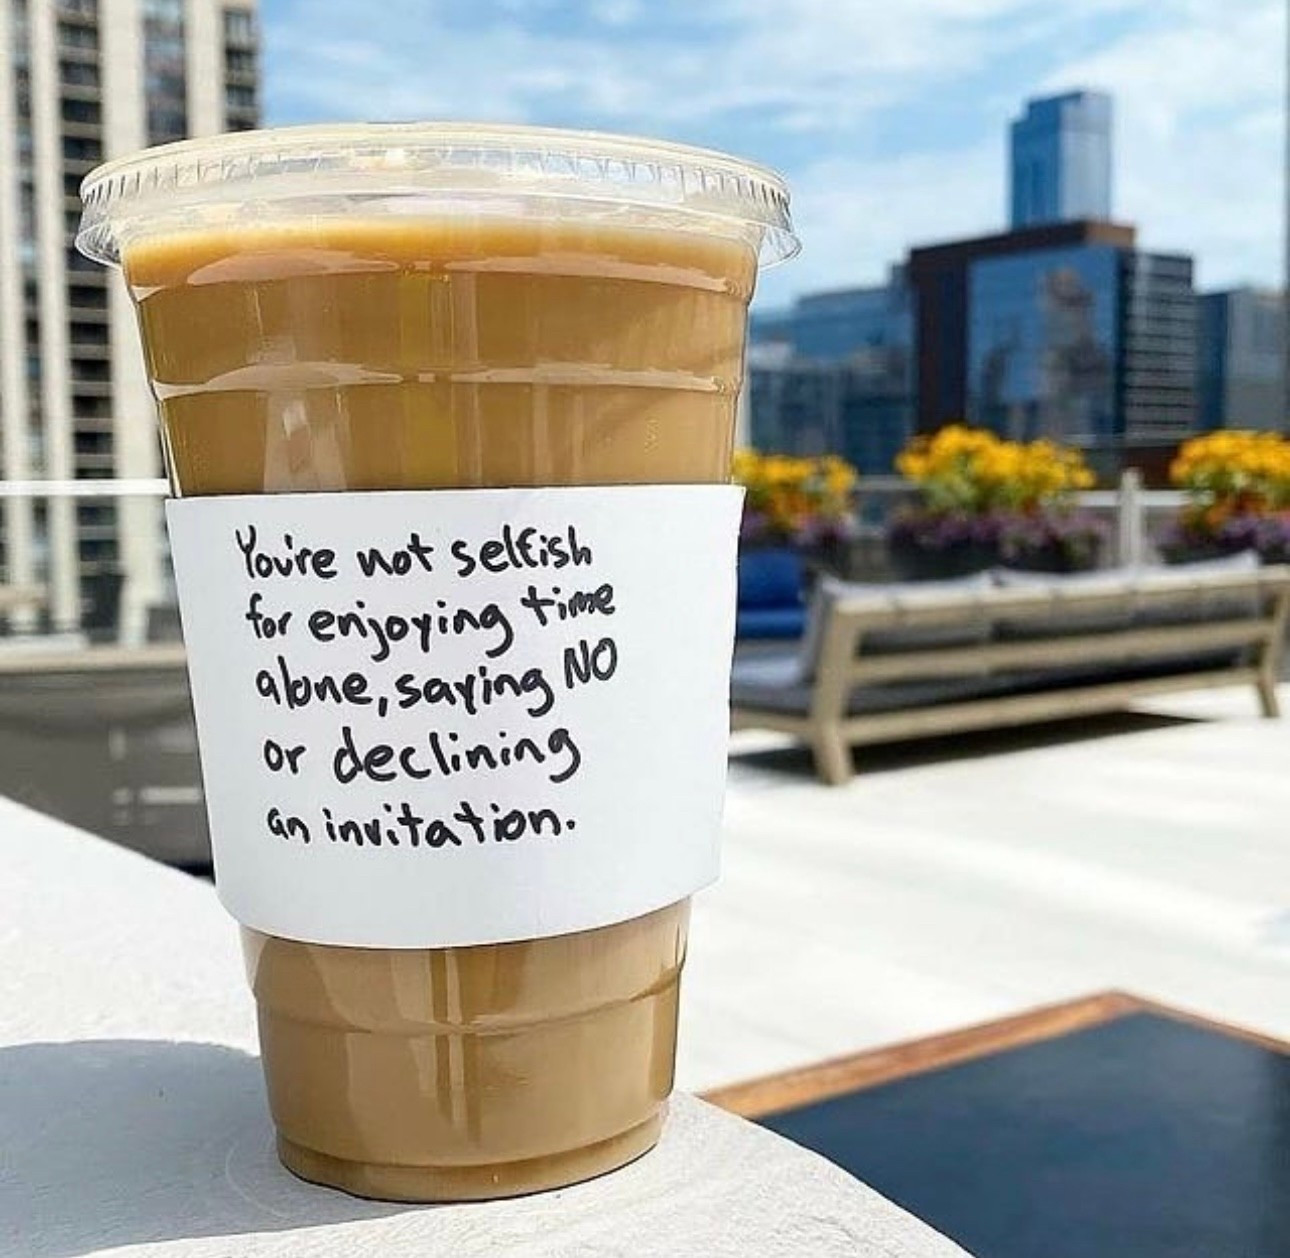 You're not selfish
for enjoying time
alone, saying NO
or declining
an invitation.